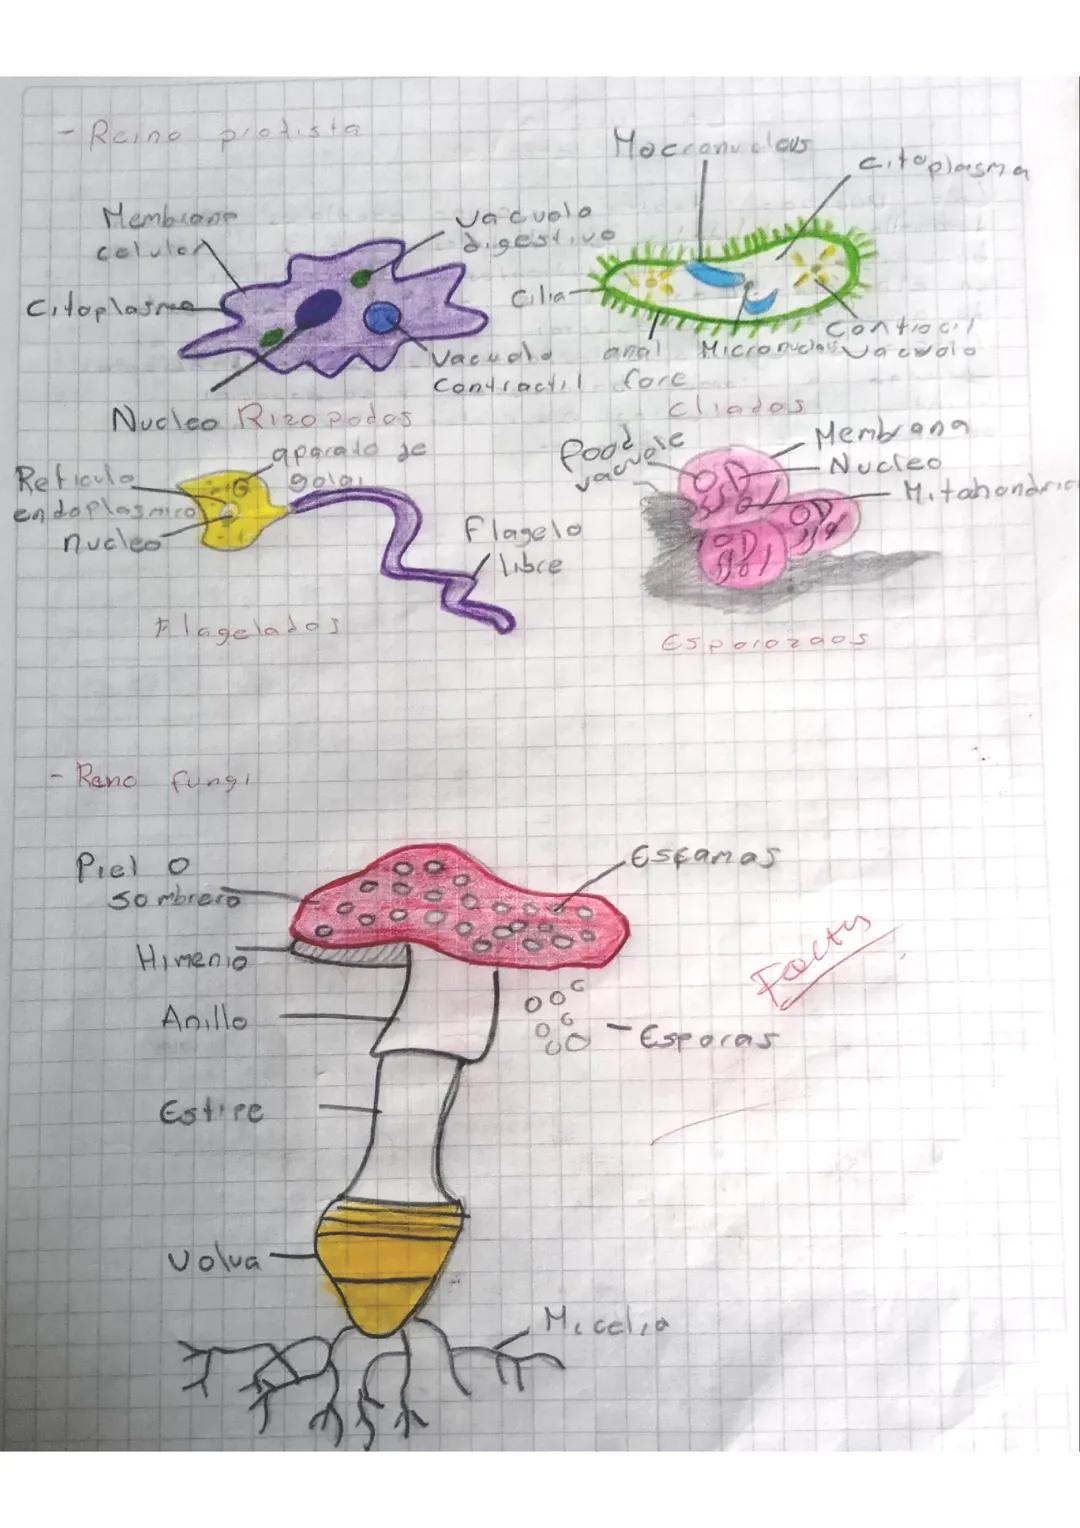 - Reino protista
Membrana
celular
Citoplasma
Vacuolo
digestivo
Vacuolo
Contractil
Nucleo
Rizopodos
Macronucleus
Citoplasma
Cilia
anal
Pore
Micronucleus
Contractil
vacuolo
Cliados
Reticulo
endoplasmico
nucleo
aparato de
golgi
Flagelo
libre
Flagelados
Food
vacuole
Membrana
Nucleo
Mitohondric
Esporozoos
- Reino fungi
Piel o
sombrero
Himenio
Anillo
Estipe
Volva
Escamas
- Esporas
Micelia